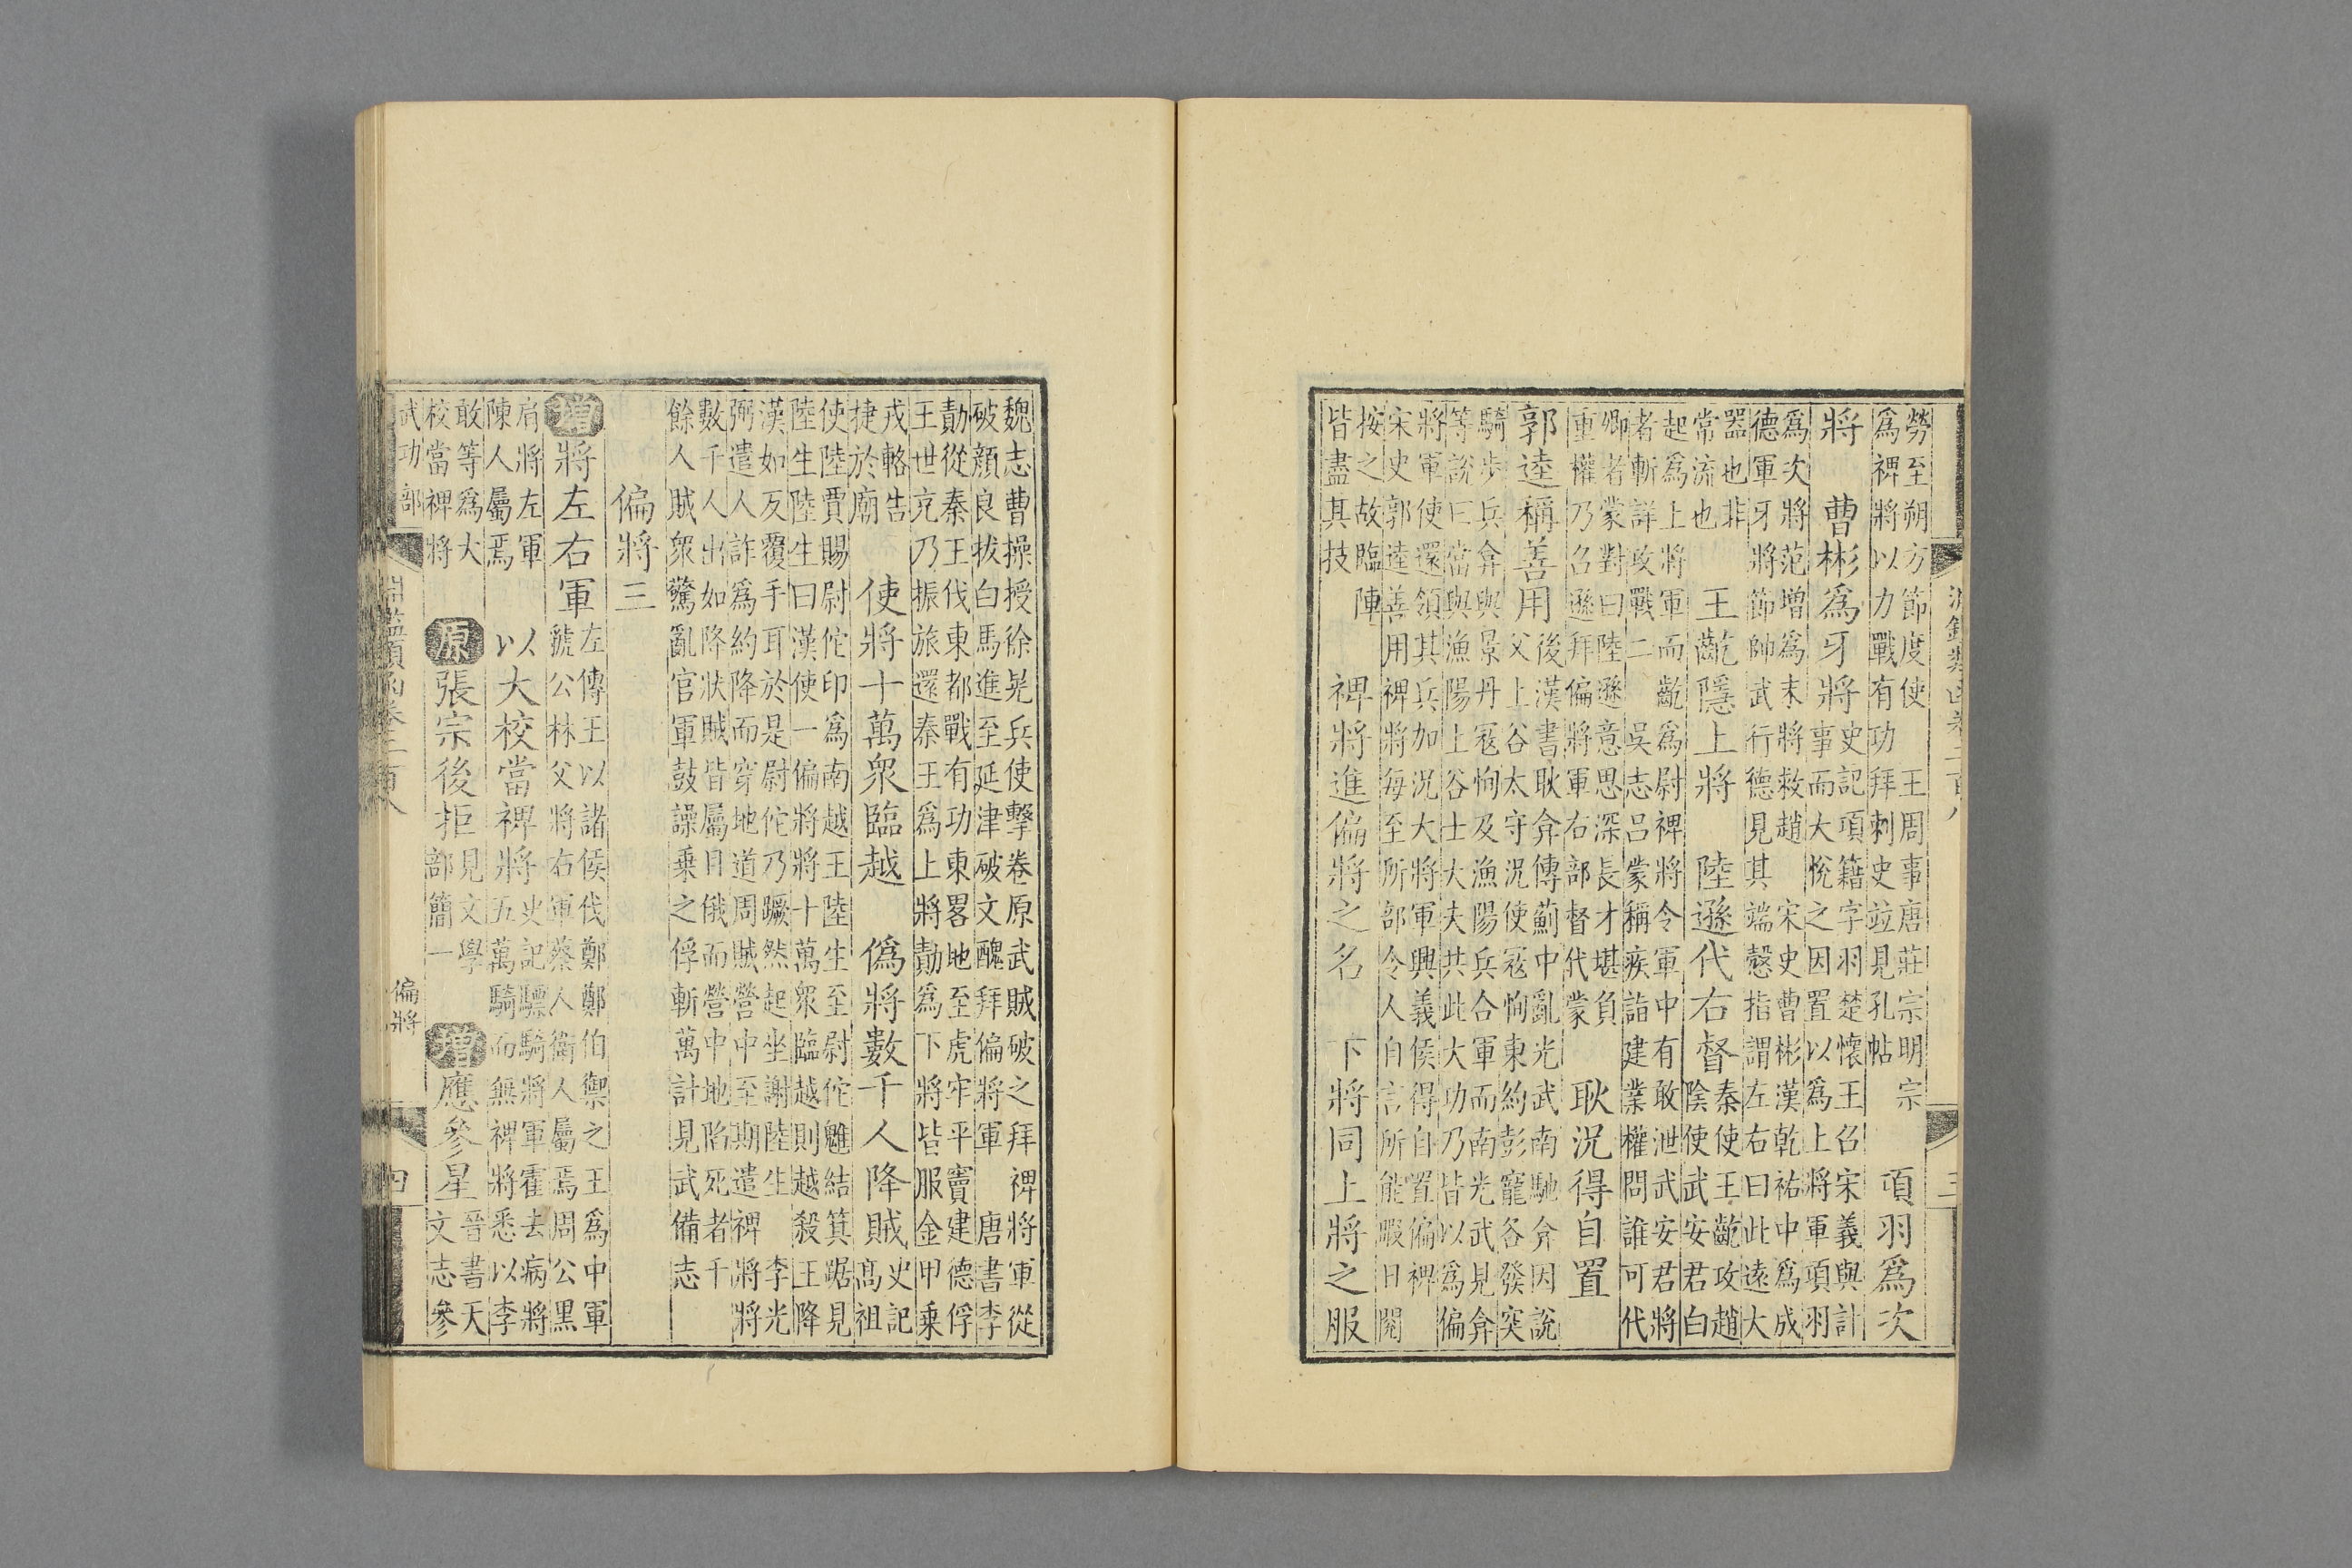 淵鑑類函卷二百八 三
勞至朔方節度使 王周事唐莊宗明宗
爲裨將以力戰有功拜刺史竝見孔帖
項羽爲次
將 曹彬爲牙將
史記項籍字羽楚懷王召宋義與計
事而大悅之因置以爲上將軍項羽
爲次將范增爲末將救趙 宋史曹彬漢乾祐中爲成
德軍牙將節帥武行德見其端慤指謂左右曰此遠大
器也非
常流也
王齕隱上將 陸遜代右督
秦使王齕攻趙
陰使武安君白
起爲上將軍而齕爲尉裨將令軍中有敢泄武安君將
者斬詳攻戰二 吳志呂蒙稱疾詣建業權問誰可代
卿者蒙對曰陸遜意思深長才堪負
重權乃召遜拜偏將軍右部督代蒙
耿況得自置
郭逵稱善用
後漢書耿弇傳薊中亂光武南馳弇因說
父上谷太守況使寇恂東約彭寵各發突
騎步兵弇與景丹寇恂及漁陽兵合軍而南光武見弇
等說曰當與漁陽上谷士大夫共此大功乃皆以爲偏
將軍使還領其兵加況大將軍興義侯得自置偏裨
宋史郭逵善用裨將每至所部令人自言所能暇日閱
按之故臨陣
皆盡其技
裨將進偏將之名 下將同上將之服
魏志曹操授徐晃兵使擊卷原武賊破之拜裨將軍從
破顏良拔白馬進至延津破文醜拜偏將軍 唐書李
勣從秦王伐東都戰有功東畧地至虎牢平竇建德俘
王世充乃振旅還秦王爲上將勣爲下將皆服金甲乘
戎輅告
捷於廟
使將十萬衆臨越 僞將數千人降賊
史記
高祖
使陸賈賜尉佗印爲南越王陸生至尉佗魋結箕踞見
陸生陸生曰漢使一偏將將十萬衆臨越則越殺王降
漢如反覆手耳於是尉佗乃蹶然起坐謝陸生 李光
弼遣人詐爲約降而穿地道周賊營中至期遣裨將將
數千人出如降狀賊皆屬目俄而營中地陷死者千
餘人賊衆驚亂官軍鼓譟乘之俘斬萬計見武備志
偏將三
增 將左右軍
左傳王以諸侯伐鄭鄭伯禦之王爲中軍
虢公林父將右軍蔡人衞人屬焉周公黑
肩將左軍
陳人屬焉
以大校當裨將
史記驃騎將軍霍去病將
五萬騎而無裨將悉以李
敢等爲大
校當裨將
原 張宗後拒
見文學
部簡一
增 應參星
晉書天
文志參
武功部 淵鑑類函卷二百八 偏將 四